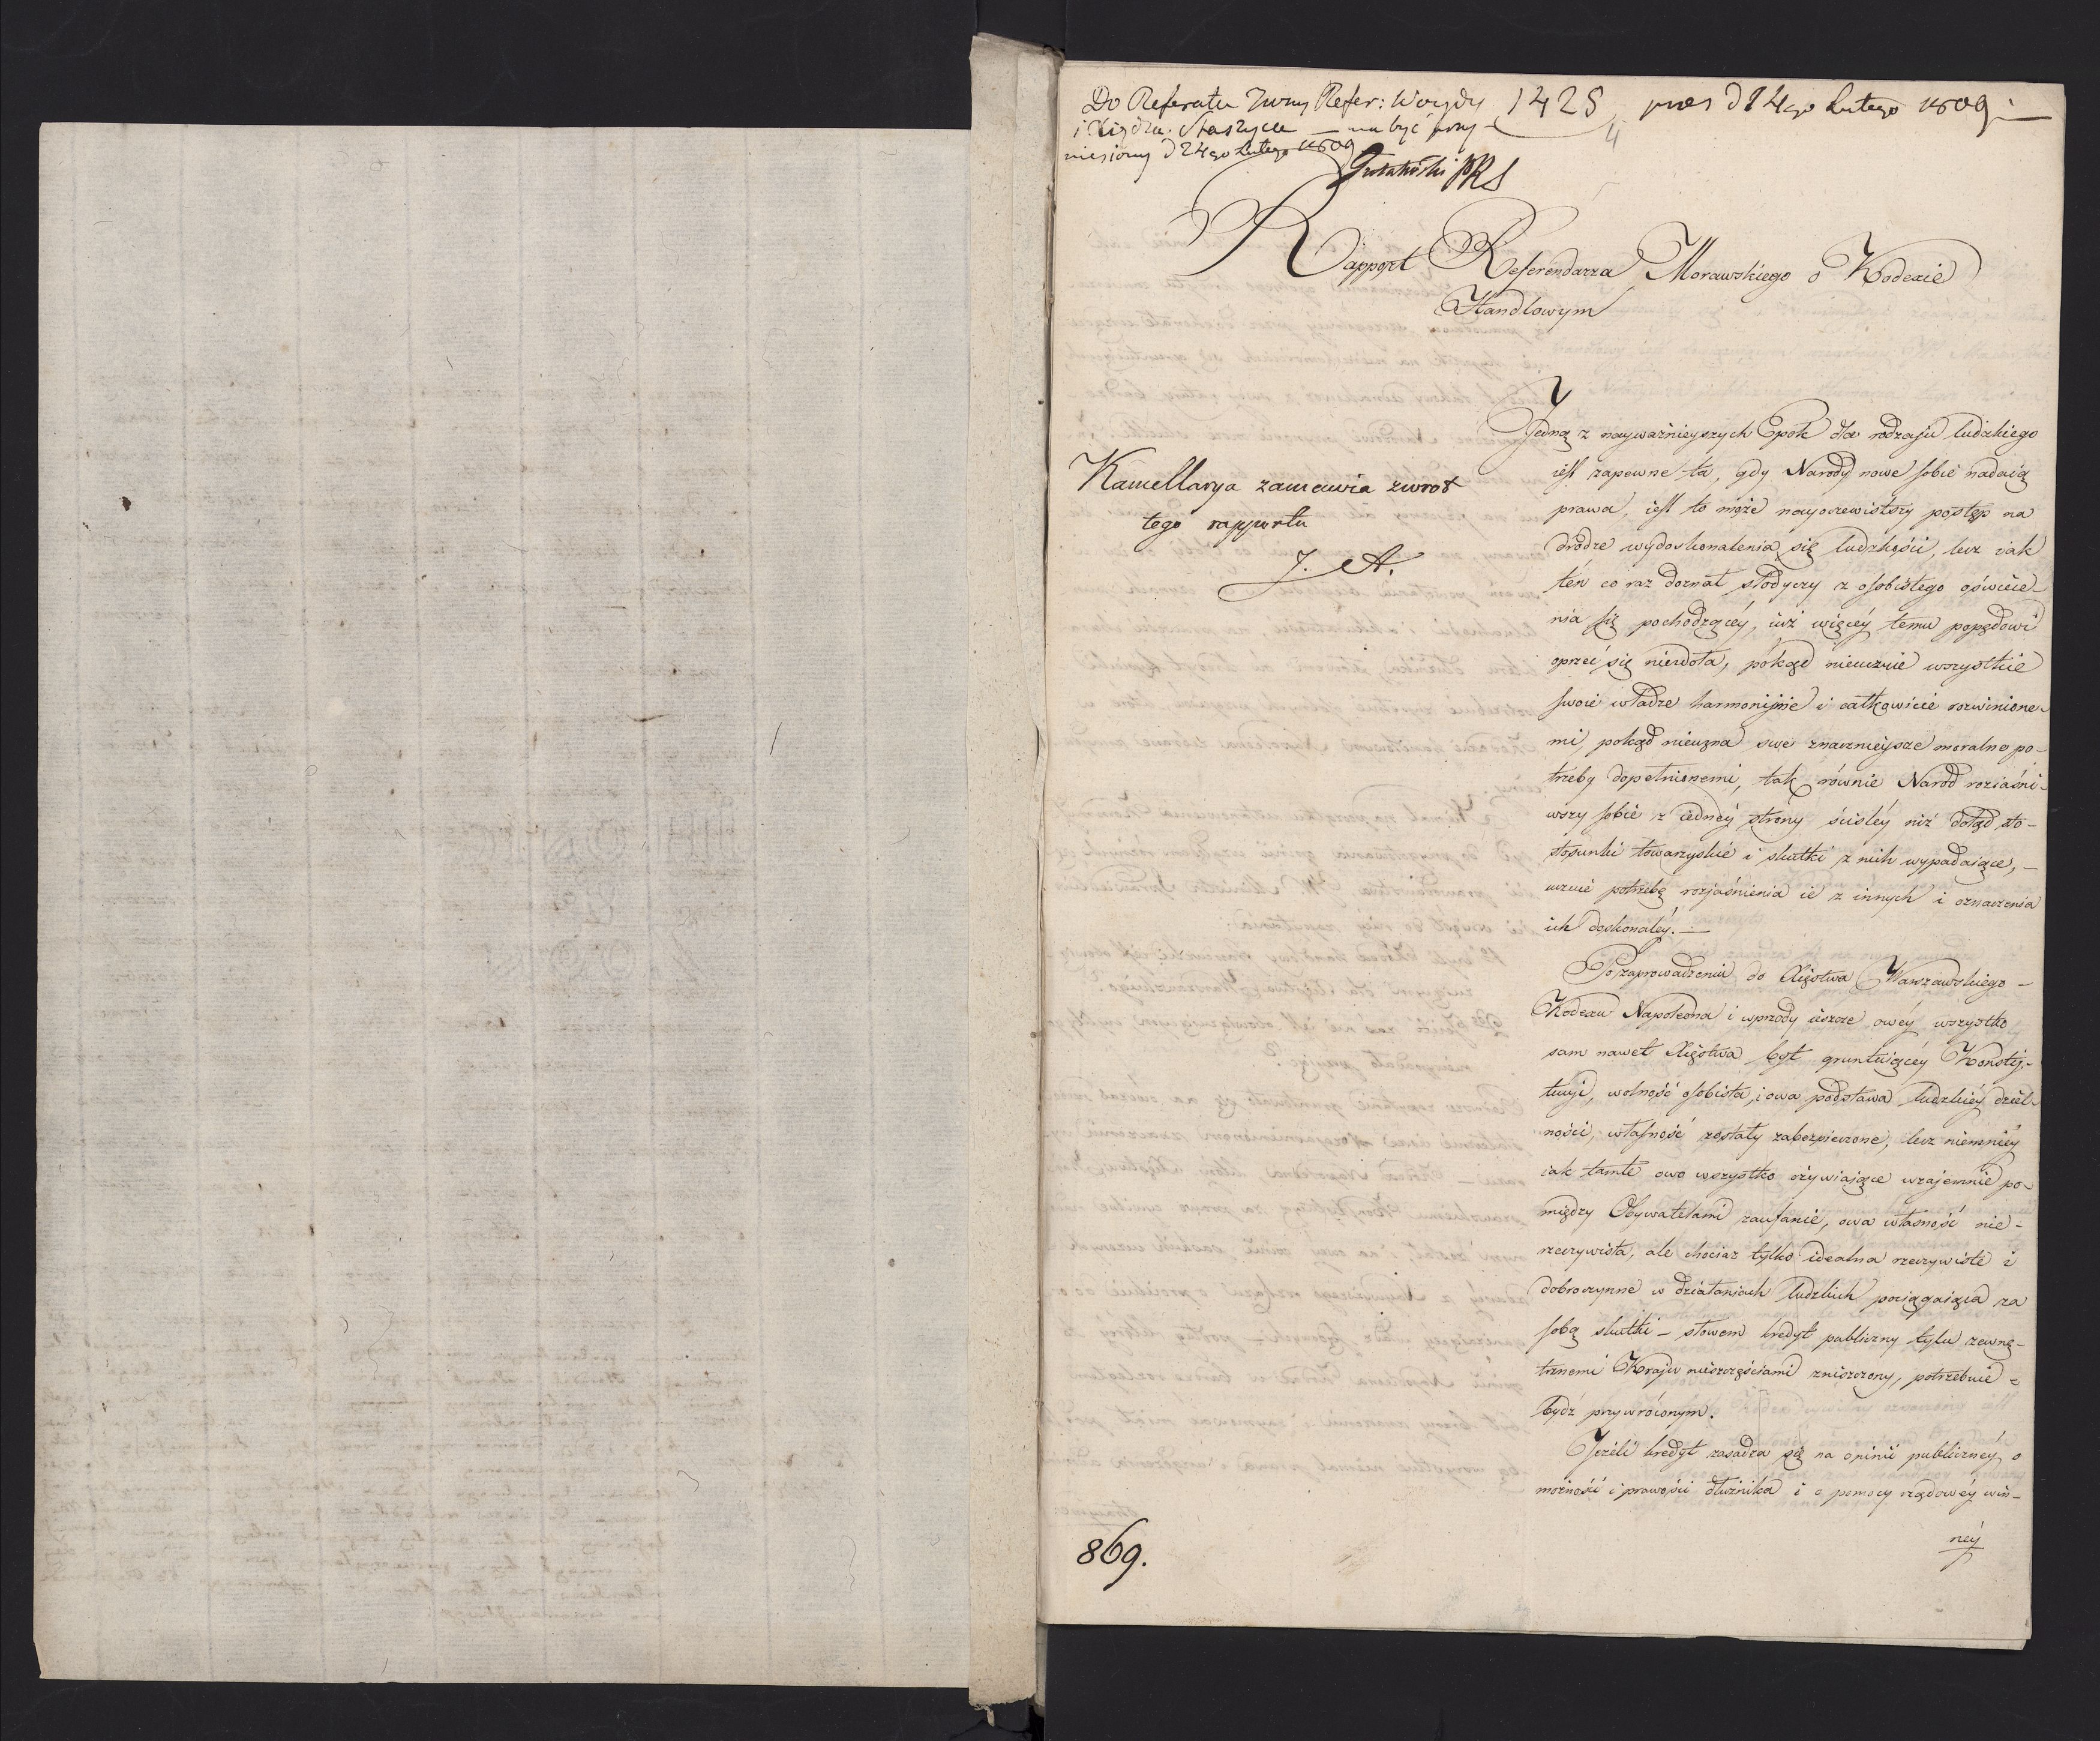 Do Referatu Refer: Woydy 1425 pres d 24go Lutego 1809
i Xiędza Staszyca — ma być przy-
niesiony d 24go Lutego 1809
4
PRS
Rapport Referendarza Morawskiego o Kodexie
Handlowym
Kancellarya zamawia zwrot
tego rapportu
J. A.
Jedną z nayważnieyszych Epok dla rodzaju ludzkiego
iest zapewne ta, gdy Narody nowe sobie nadaią
prawa, iest to może nayoczewistszy postęp na
drodze wydoskonalenia się ludzkości, lecz iak
ten co raz doznał słodyczy z osobistego oświece-
nia się pochodzącéy, iuż więcéy temu popędowi
oprzeć się niezdoła, pókąd nieuczuie wszystkie
swoie władze harmoniynie i całkowicie rozwinione-
mi, pokąd nieuzna swe znacznieysze moralne po-
trzeby dopełnionemi, tak równie Naród roziaśni-
wszy sobie z iednéy strony ściśléy niż dotąd sto-
stosunki towarzyskie i skutki z nich wypadaiące, —
uczuie potrzebę rozjaśnienia ie z innych i oznaczenia
ich doskonaléy. —
Po zaprowadzeniu do Xięstwa Warszawskiego —
Kodexu Napoleona i wprzódy ieszcze owéy wszystko
sam nawet Xięstwa byt gruntuiącéy Konsty-
tucyi, wolność osobista, i owa podstawa ludzkiéy dziel-
ności, własność zostały zabezpieczone, lecz niemniéy
iak tamte owo wszystko ożywiaiące wzajemnie po-
między Obywatelami zaufanie, owa własność nie-
rzeczywista, ale chociaż tylko idealna rzeczywiste i
dobroczynne w działaniach ludzkich pociągaiąca za
sobą skutki — słowem kredyt publiczny tylu zewnę-
trznemi Kraju nieszczęściami zniszczony, potrzebuie
bydź przywróconym.
Jeżeli kredyt zasadza się na opinii publicznéy o
możności i prawości dłużnika i o pomocy rządowéy win-
néy
869.